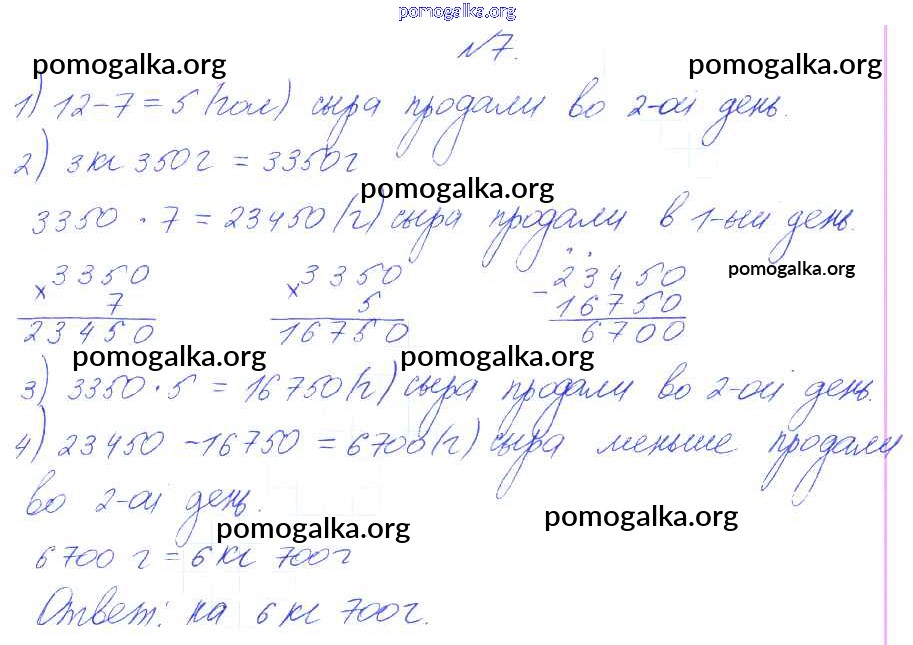 pomogalka.org
№7.
pomogalka.org pomogalka.org
1) 12-7=5 (гол) сыра продали во 2-ой день.
2) 3кг 350г = 3350г
pomogalka.org
3350 · 7 = 23450 (г) сыра продали в 1-ый день.
pomogalka.org
× 3350 × 3350 - 23450
7 5 16750
23450 16750 6700
pomogalka.org pomogalka.org
3) 3350 · 5 = 16750 (г) сыра продали во 2-ой день.
4) 23450 - 16750 = 6700 (г) сыра меньше продали
во 2-ой день.
pomogalka.org pomogalka.org
6700 г = 6 кг 700г
Ответ: на 6 кг 700г.